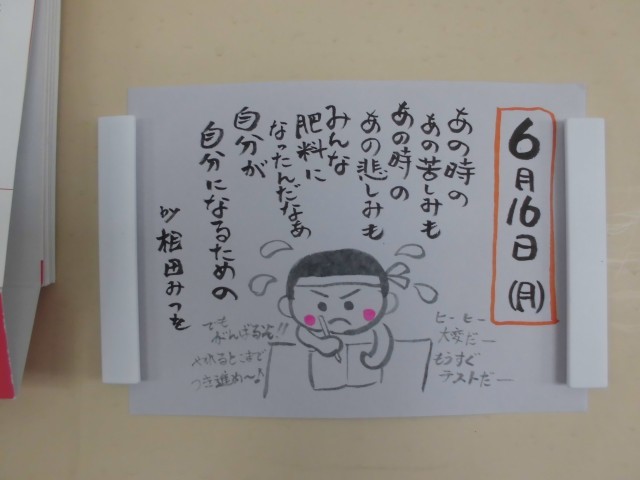 6月16日(月)
あの時の
あの苦しみも
あの時の
あの悲しみも
みんな
肥料に
なったんだなあ
自分が
自分になるための
by 相田みつを
ヒーヒー
大変だー
もうすぐ
テストだー
でも
がんばるぞ!!
やれるとこまで
つき進め〜♪